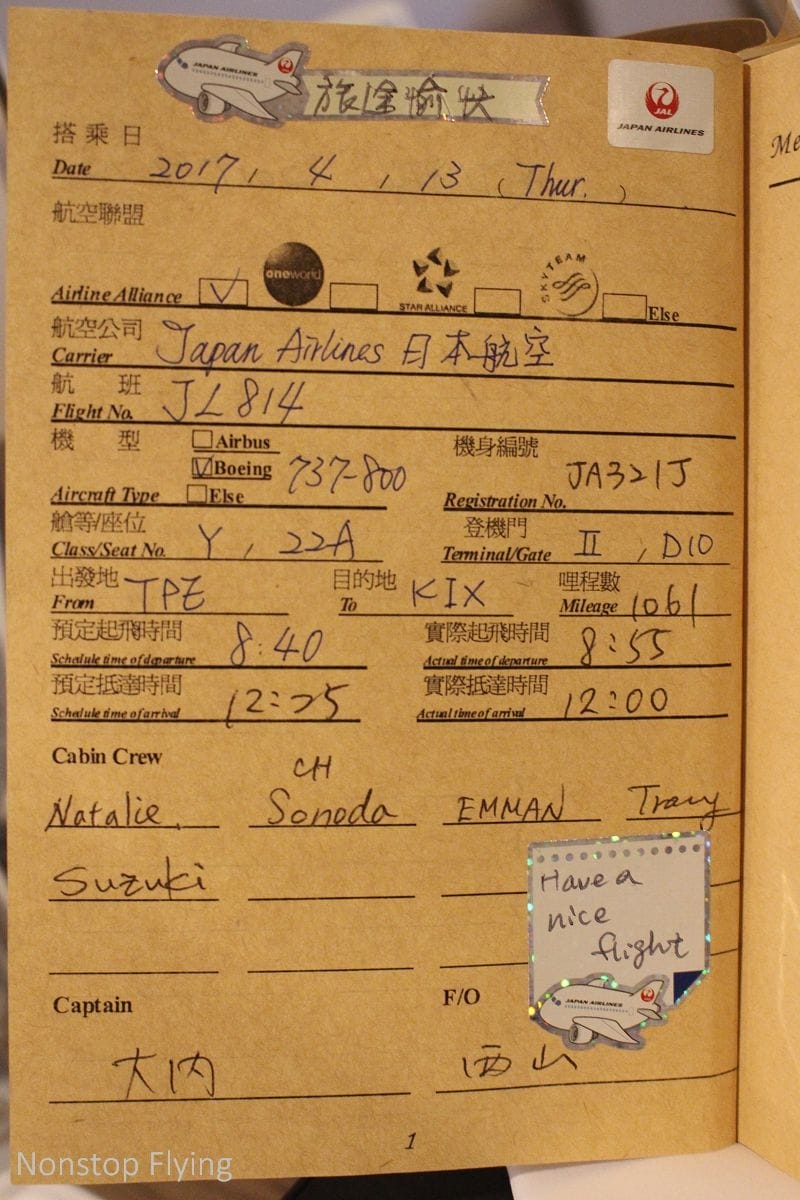 JAPAN AIRLINES
旅途愉快
JAL
JAPAN AIRLINES
搭乘日
Date 2017, 4, 13 (Thur.)
Me
航空聯盟
Airline Alliance V oneworld STAR ALLIANCE SKYTEAM Else
航空公司
Carrier Japan Airlines 日本航空
航 班
Flight No. JL814
機 型 Airbus 機身編號
V Boeing 737-800 JA321J
Aircraft Type Else Registration No.
艙等/座位 登機門
Class/Seat No. Y, 22A Terminal/Gate II, D10
出發地 目的地 哩程數
From TPE To KIX Mileage 1061
預定起飛時間 8:40 實際起飛時間 8:55
Schedule time of departure Actual time of departure
預定抵達時間 12:25 實際抵達時間 12:00
Schedule time of arrival Actual time of arrival
Cabin Crew
CH
Natalie. Sonoda EMMAN Tracy
Suzuki
Have a
nice
flight
JAPAN AIRLINES
Captain F/O
大内 西山
1
Nonstop Flying